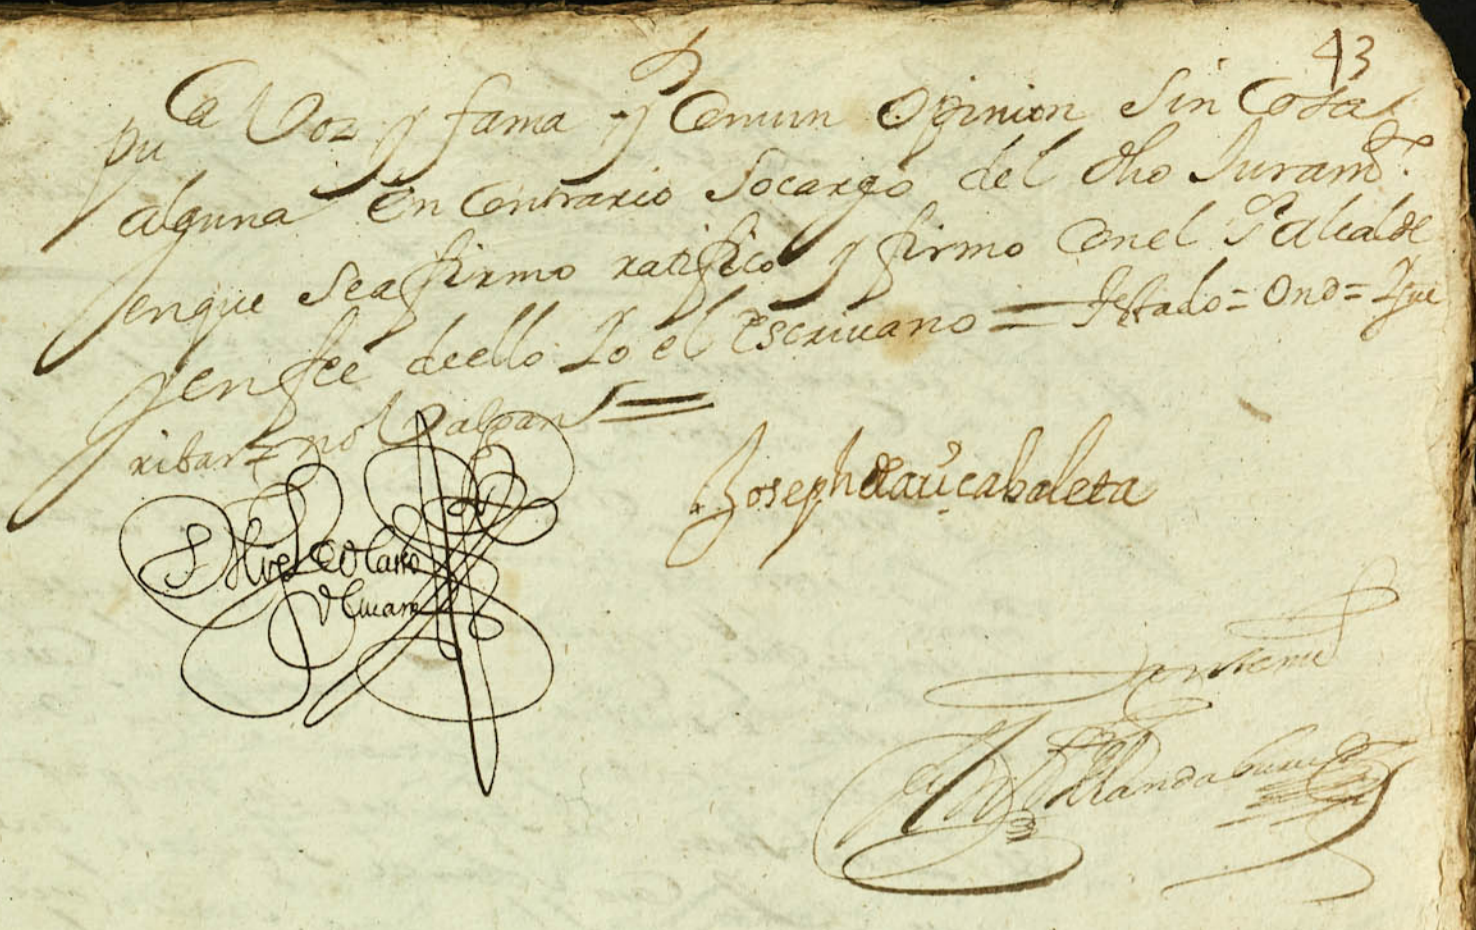 43
puca Voz y fama y Comun opinion sin Cosa
alguna en Contrario socargo del dho Juramto.
enque seafirmo ratifico y firmo Conel Sr Alcalde
yenfee deello Yo el Escriuano = testado = ono = Y gue
ribar = no Valgan =
Joseph de
Ante mi